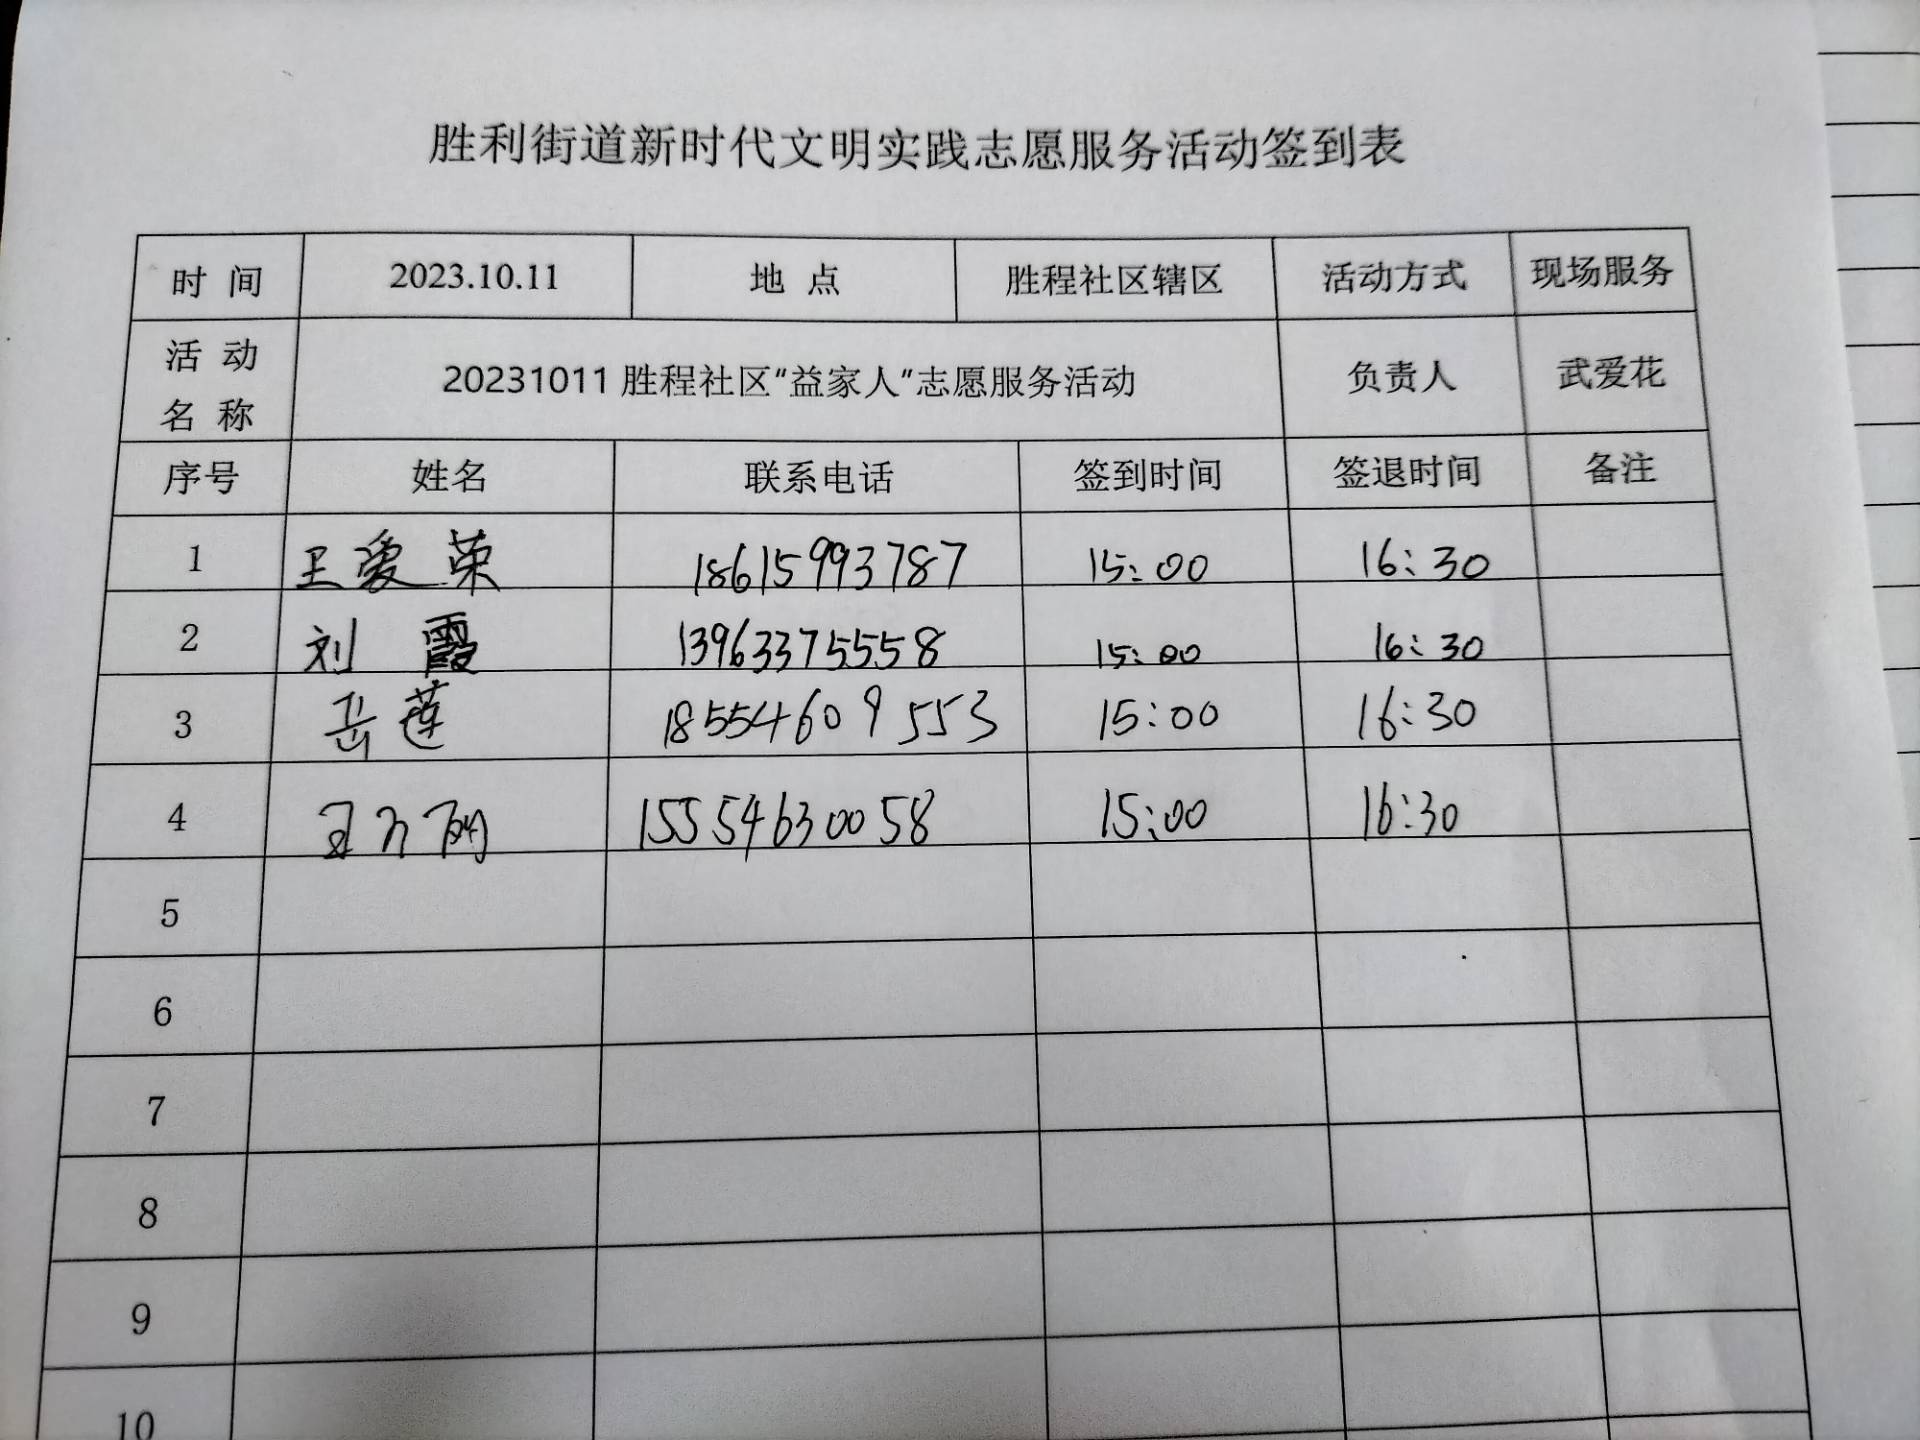 胜利街道新时代文明实践志愿服务活动签到表
时 间 2023.10.11 地 点 胜程社区辖区 活动方式 现场服务
活 动
名 称 20231011 胜程社区“益家人”志愿服务活动 负责人 武爱花
序号 姓名 联系电话 签到时间 签退时间 备注
1 王爱荣 18615993787 15:00 16:30
2 刘 霞 13963375558 15:00 16:30
3 岳莲 18554609553 15:00 16:30
4 王 15554630058 15:00 16:30
5
6
7
8
9
10